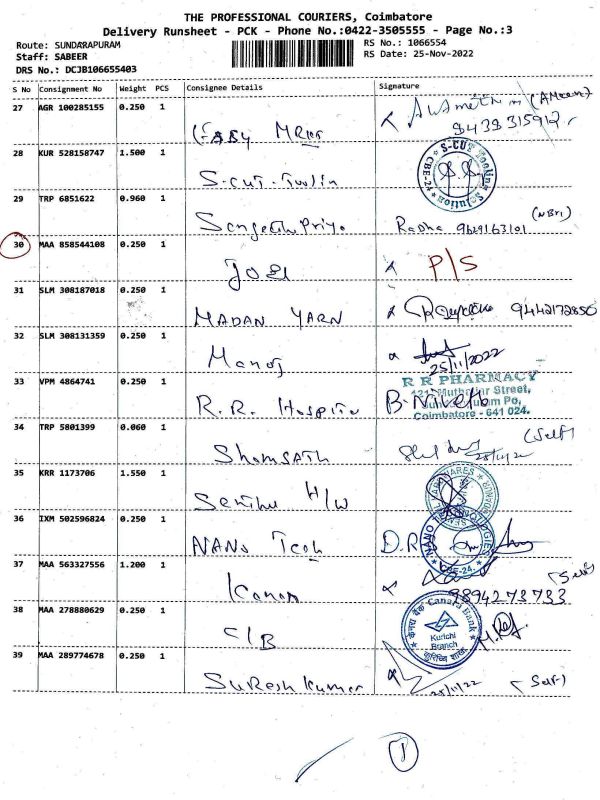 THE PROFESSIONAL COURIERS, Coimbatore
Delivery Runsheet - PCK - Phone No.:0422-3505555 - Page No.:3
Route: SUNDARAPURAM
RS No.: 1066554
Staff: SABEER
RS Date: 25-Nov-2022
DRS No.: DCJB106655403
S No Consignment No Weight PCS Consignee Details Signature
27 AGR 100285155 0.250 1
28 KUR 528158747 1.500 1 S-CUT-Toolin
S-CUT Tooling Solution CBE-24
29 TRP 6851622 0.960 1 Radha 9629163101
30 MAA 858544108 0.250 1 P/S
31 SLM 308187018 0.250 1 MADAN YARN 9442172850
32 SLM 308131359 0.250 1 Manoj 25/11/2022
33 VPM 4864741 0.250 1 R.R. Hospital B. Nivetha
R R PHARMACY
Coimbatore - 641 024.
34 TRP 5801399 0.060 1 Shamsath (Self)
35 KRR 1173706 1.550 1 H/W
36 IXM 502596824 0.250 1 NANO Tech
37 MAA 563327556 1.200 1 (Self)
9894273733
38 MAA 278880629 0.250 1 CIB
केनरा बैंक Canara Bank
Kurichi
Branch
39 MAA 289774678 0.250 1 Suresh Kumar 25/11/22 (Self)
1